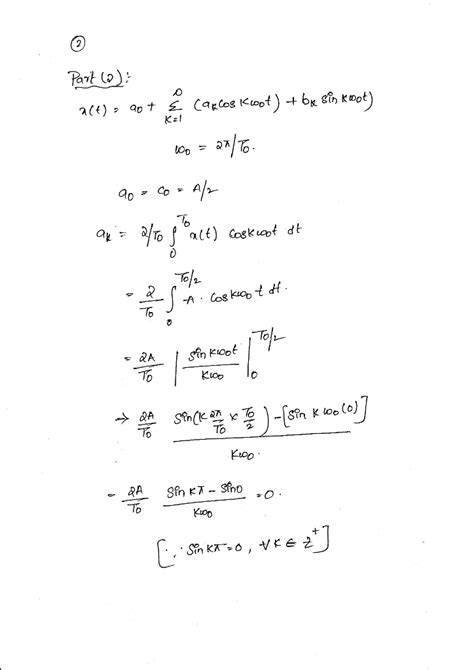 ②
Part (2):
x(t) = a0 + ∞ΣK=1 (aK cos Kω0t) + bK sin Kω0t)
ω0 = 2π/T0.
a0 = C0 = A/2
aK = 2/T0 ∫0^T0 x(t) cos Kω0t dt
= 2/T0 ∫0^T0/2 A. cos Kω0 t dt.
= 2A/T0 | sin Kω0t / Kω0 |0^T0/2
→ 2A/T0 sin(K 2π/T0 × T0/2) - [sin K ω0(0)] / Kω0.
= 2A/T0 sin Kπ - sin 0 / Kω0 = 0.
[∵ sin Kπ = 0, ∀ K ∈ Z+]